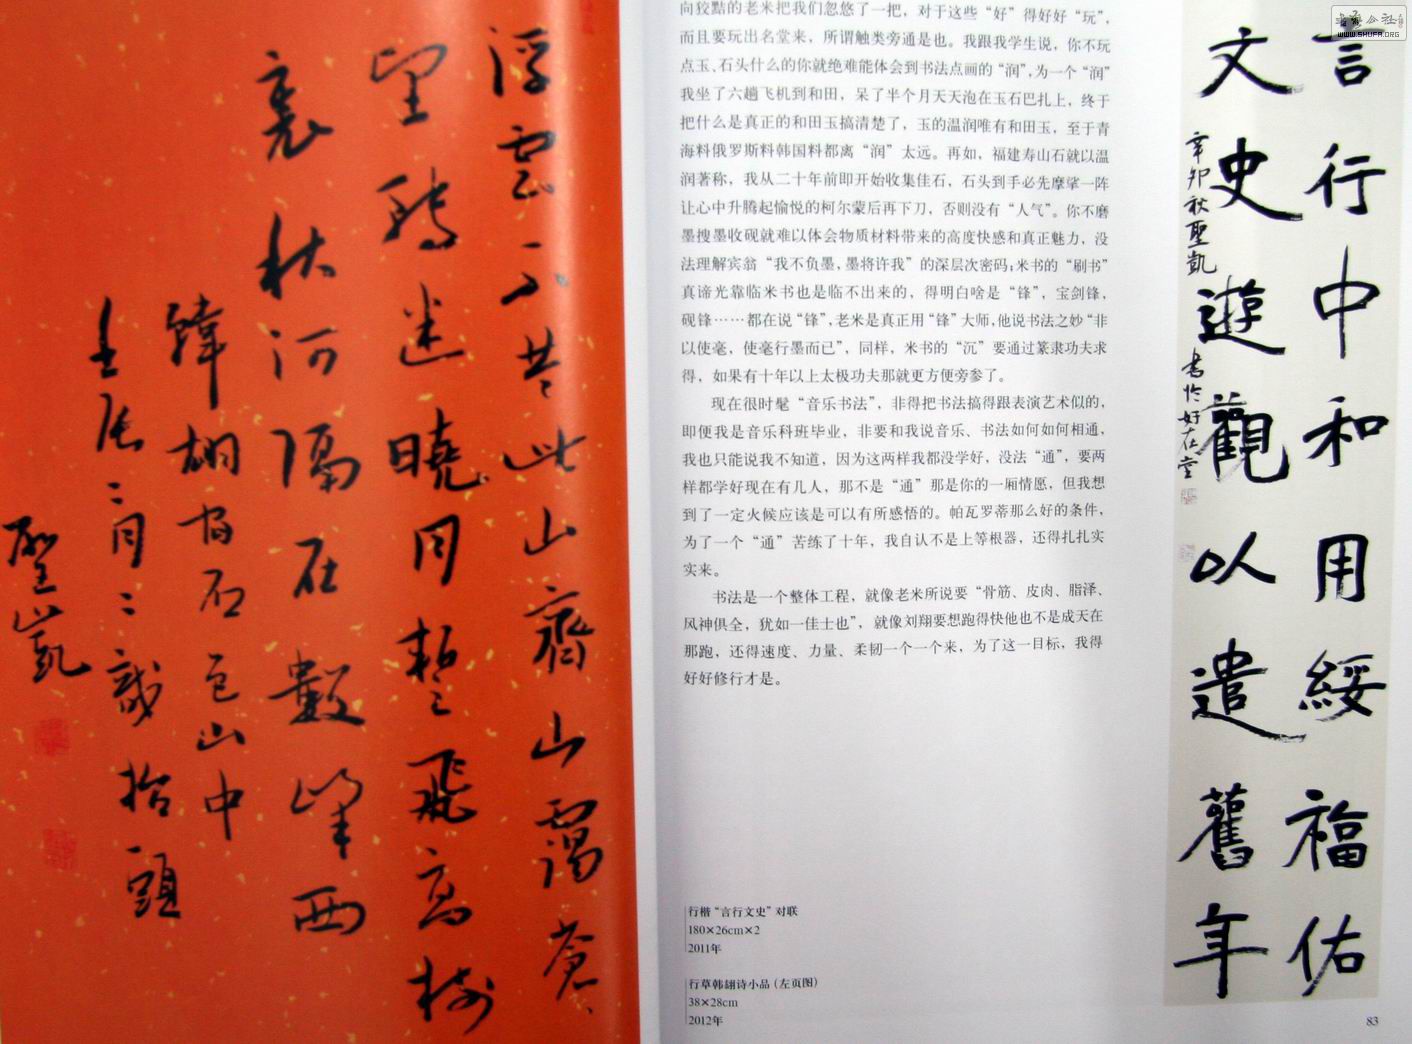 浮雲不共此山齊山靄蒼
望轉迷曉月暫飛高樹
裏秋河隔在數峯西
韓翃宿石邑山中
壬辰二月二抬頭
聖凱
向狡黠的老米把我们忽悠了一把，对于这些“好”得好好“玩”，
而且要玩出名堂来，所谓触类旁通是也。我跟我学生说，你不玩
点玉、石头什么的你就绝难能体会到书法点画的“润”，为一个“润”
我坐了六趟飞机到和田，呆了半个月天天泡在玉石巴扎上，终于
把什么是真正的和田玉搞清楚了，玉的温润唯有和田玉，至于青
海料俄罗斯料韩国料都离“润”太远。再如，福建寿山石就以温
润著称，我从二十年前即开始收集佳石，石头到手必先摩挲一阵
让心中升腾起愉悦的柯尔蒙后再下刀，否则没有“人气”。你不磨
墨搜墨收砚就难以体会物质材料带来的高度快感和真正魅力，没
法理解宾翁“我不负墨，墨将许我”的深层次密码；米书的“刷书”
真谛光靠临米书也是临不出来的，得明白啥是“锋”，宝剑锋，
砚锋……都在说“锋”，老米是真正用“锋”大师，他说书法之妙“非
以使毫，使毫行墨而已”，同样，米书的“沉”要通过篆隶功夫求
得，如果有十年以上太极功夫那就更方便旁参了。
现在很时髦“音乐书法”，非得把书法搞得跟表演艺术似的，
即便我是音乐科班毕业，非要和我说音乐、书法如何如何相通，
我也只能说我不知道，因为这两样我都没学好，没法“通”，要两
样都学好现在有几人，那不是“通”那是你的一厢情愿，但我想
到了一定火候应该是可以有所感悟的。帕瓦罗蒂那么好的条件，
为了一个“通”苦练了十年，我自认不是上等根器，还得扎扎实
实来。
书法是一个整体工程，就像老米所说要“骨筋、皮肉、脂泽、
风神俱全，犹如一佳士也”，就像刘翔要想跑得快他也不是成天在
那跑，还得速度、力量、柔韧一个一个来，为了这一目标，我得
好好修行才是。
行楷“言行文史”对联
180×26cm×2
2011年
行草韩翃诗小品（左页图）
38×28cm
2012年
言行中和用綏福佑
文史遊觀以遣舊年
辛卯秋聖凱
書於好在堂
83
WWW.SHUFA.ORG